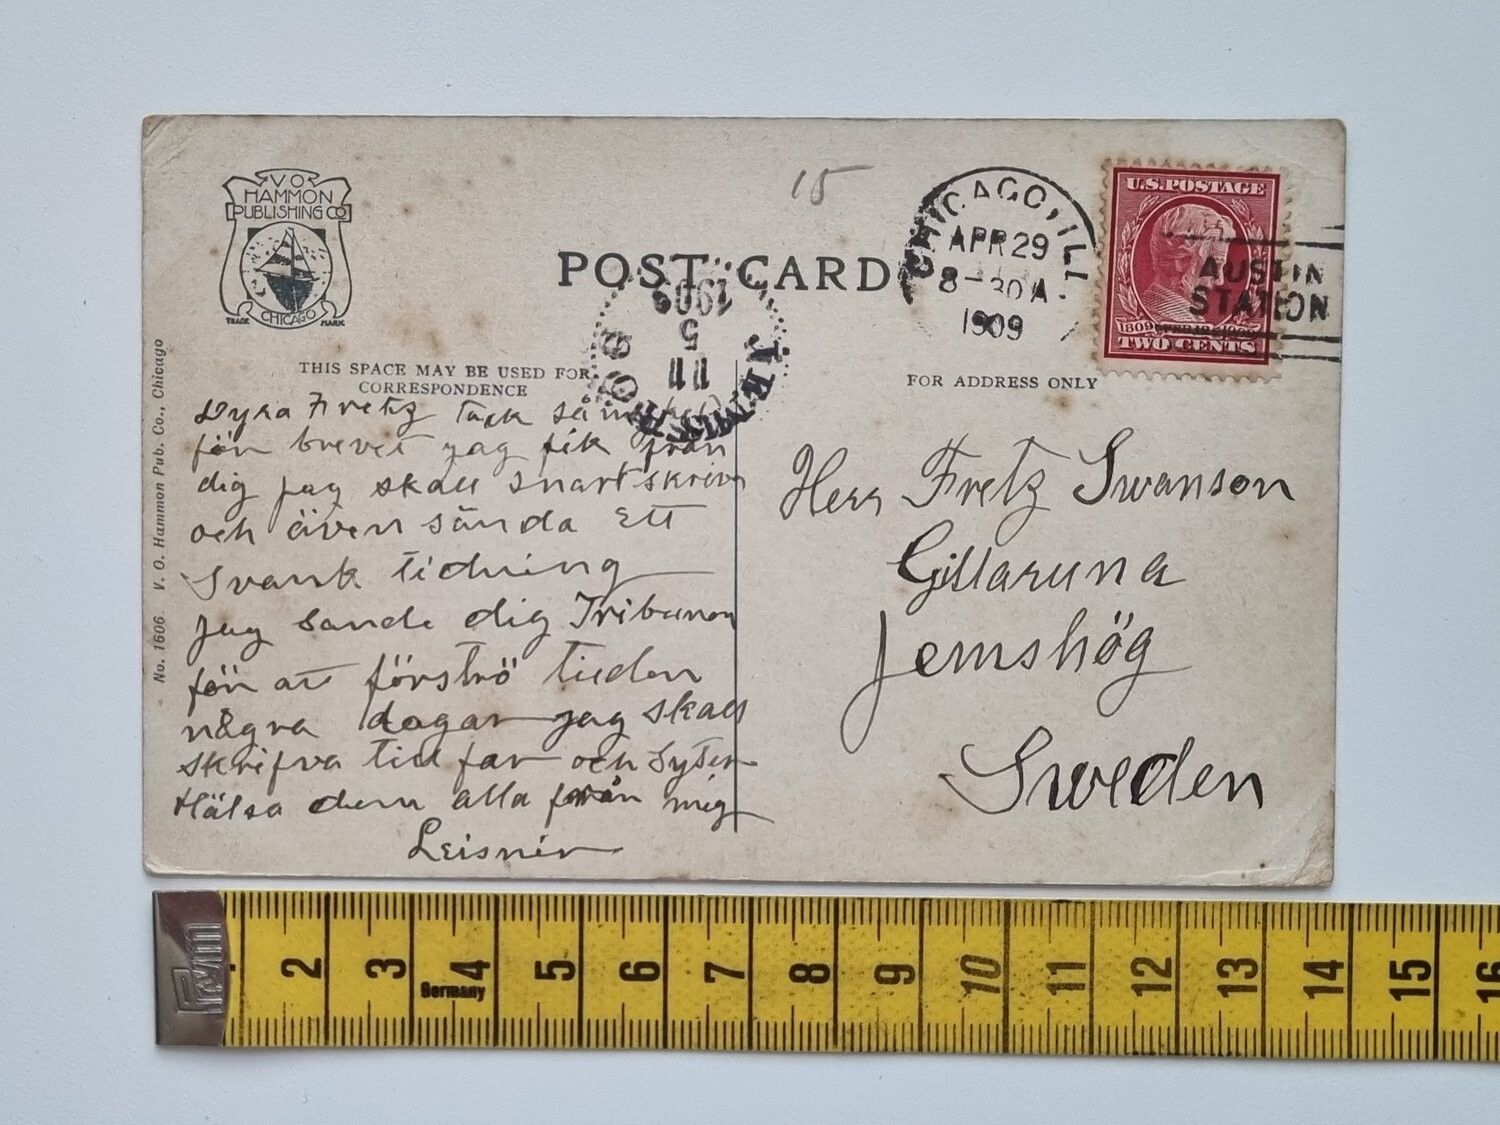 V O
HAMMON
PUBLISHING CO
CHICAGO
TRADE MARK
15
POST CARD
CHICAGO, ILL.
APR 29
8-30 A
1909
U.S.POSTAGE
1809
TWO CENTS
AUSTIN
STATION
1909
5
11
JEMSHÖG
THIS SPACE MAY BE USED FOR
CORRESPONDENCE
FOR ADDRESS ONLY
Dyra Fretz tack så
för brevet jag fik från
dig jag skall snart skriva
och även sända Ett
Svansk tidning
jag sande dig Tribunon
för at förströ tieden
några dagar jag skall
skrifva till far och Syster
Hälsa dem alla från mig
Leisnir
Herr Fretz Swanson
Gillaruna
Jemshög
Sweden
No. 1606 V. O. Hammon Pub. Co., Chicago
Prym
2 3 4 5 6 7 8 9 10 11 12 13 14 15 16
Germany